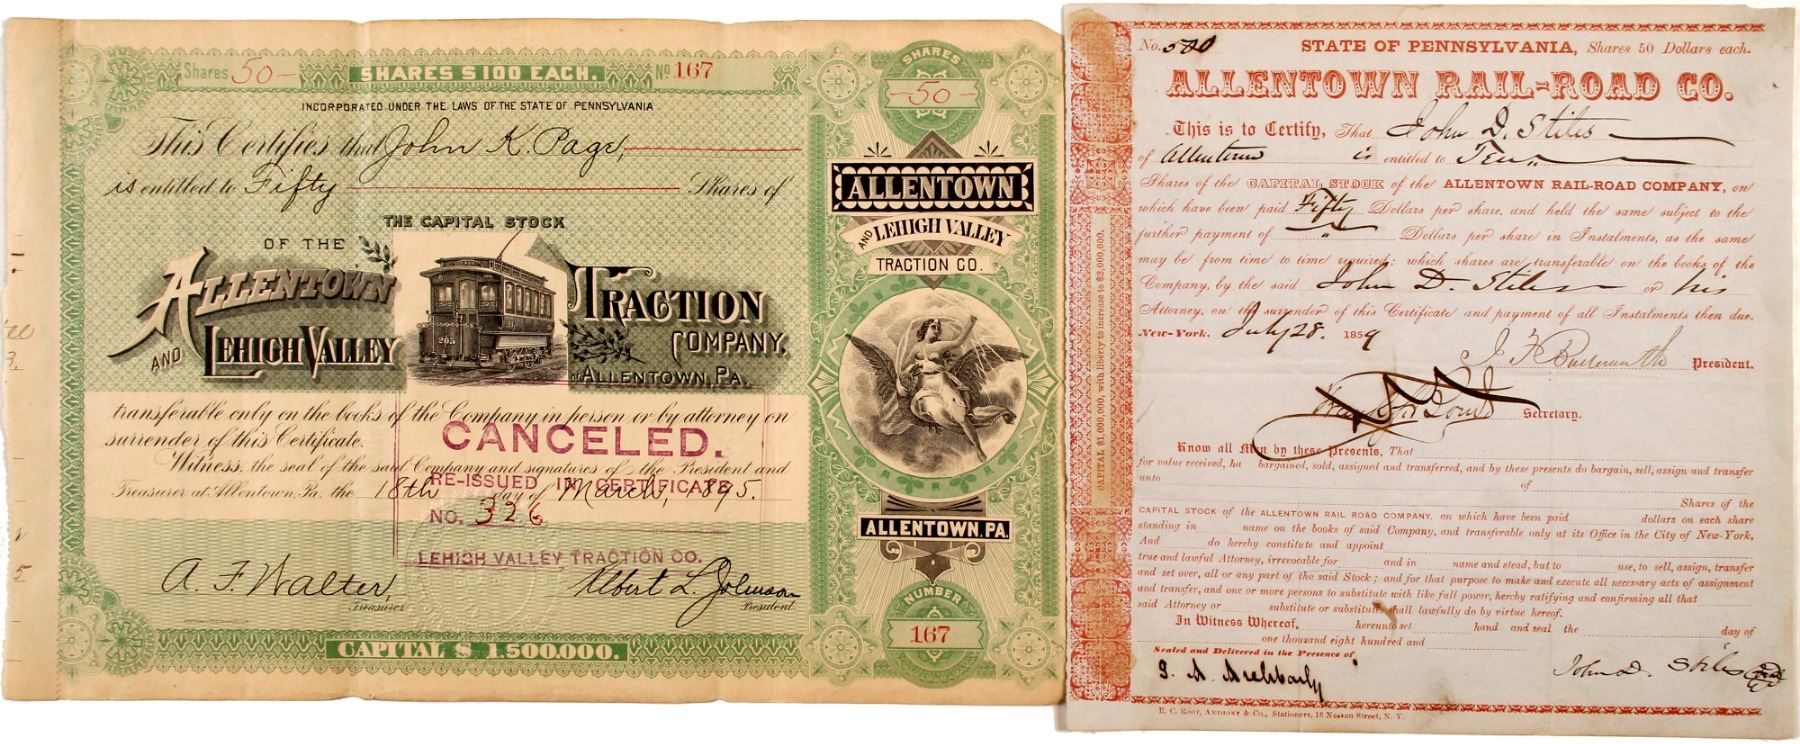 Shares 50 SHARES $100 EACH. No 167
INCORPORATED UNDER THE LAWS OF THE STATE OF PENNSYLVANIA
This Certifies that John K. Page,
is entitled to Fifty Shares of
THE CAPITAL STOCK
OF THE
ALLENTOWN
AND LEHIGH VALLEY
205
TRACTION
COMPANY,
OF ALLENTOWN, PA.
transferable only on the books of the Company in person or by attorney on
surrender of this Certificate.
CANCELED.
Witness, the seal of the said Company and signatures of the President and
RE-ISSUED IN CERTIFICATE
Treasurer at Allentown, Pa. the 18th day of March, 1895.
NO. 326
LEHIGH VALLEY TRACTION CO.
A. F. Walter,
Treasurer
Albert L. Johnson
President
CAPITAL $1,500,000.
SHARES
50
ALLENTOWN
AND LEHIGH VALLEY
TRACTION CO.
ALLENTOWN, PA.
NUMBER
167
No. 500 STATE OF PENNSYLVANIA, Shares 50 Dollars each.
ALLENTOWN RAIL-ROAD CO.
This is to Certify, That John D. Stiles
of Allentown is entitled to Ten
Shares of the CAPITAL STOCK of the ALLENTOWN RAIL-ROAD COMPANY, on
which have been paid Fifty Dollars per share, and held the same subject to the
further payment of " Dollars per share in Instalments, as the same
may be from time to time required; which shares are transferable on the books of the
Company, by the said John D. Stiles or his
Attorney, on the surrender of this Certificate and payment of all Instalments then due.
New-York, July 28. 1859
President.
Secretary.
CAPITAL $1,000,000, with liberty to increase to $2,000,000.
Know all Men by these Presents, That
for value received, ha bargained, sold, assigned and transferred, and by these presents do bargain, sell, assign and transfer
unto of
Shares of the
CAPITAL STOCK of the ALLENTOWN RAIL ROAD COMPANY, on which have been paid dollars on each share
standing in name on the books of said Company, and transferable only at its Office in the City of New-York,
And do hereby constitute and appoint
true and lawful Attorney, irrevocable for and in name and stead, but to use, to sell, assign, transfer
and set over, all or any part of the said Stock; and for that purpose to make and execute all necessary acts of assignment
and transfer, and one or more persons to substitute with like full power, hereby ratifying and confirming all that
said Attorney or substitute or substitutes shall lawfully do by virtue hereof.
In Witness Whereof, hereunto set hand and seal the day of
one thousand eight hundred and
Sealed and Delivered in the Presence of
John D. Stiles
R. C. Root, Anthony & Co., Stationers, 16 Nassau Street, N. Y.